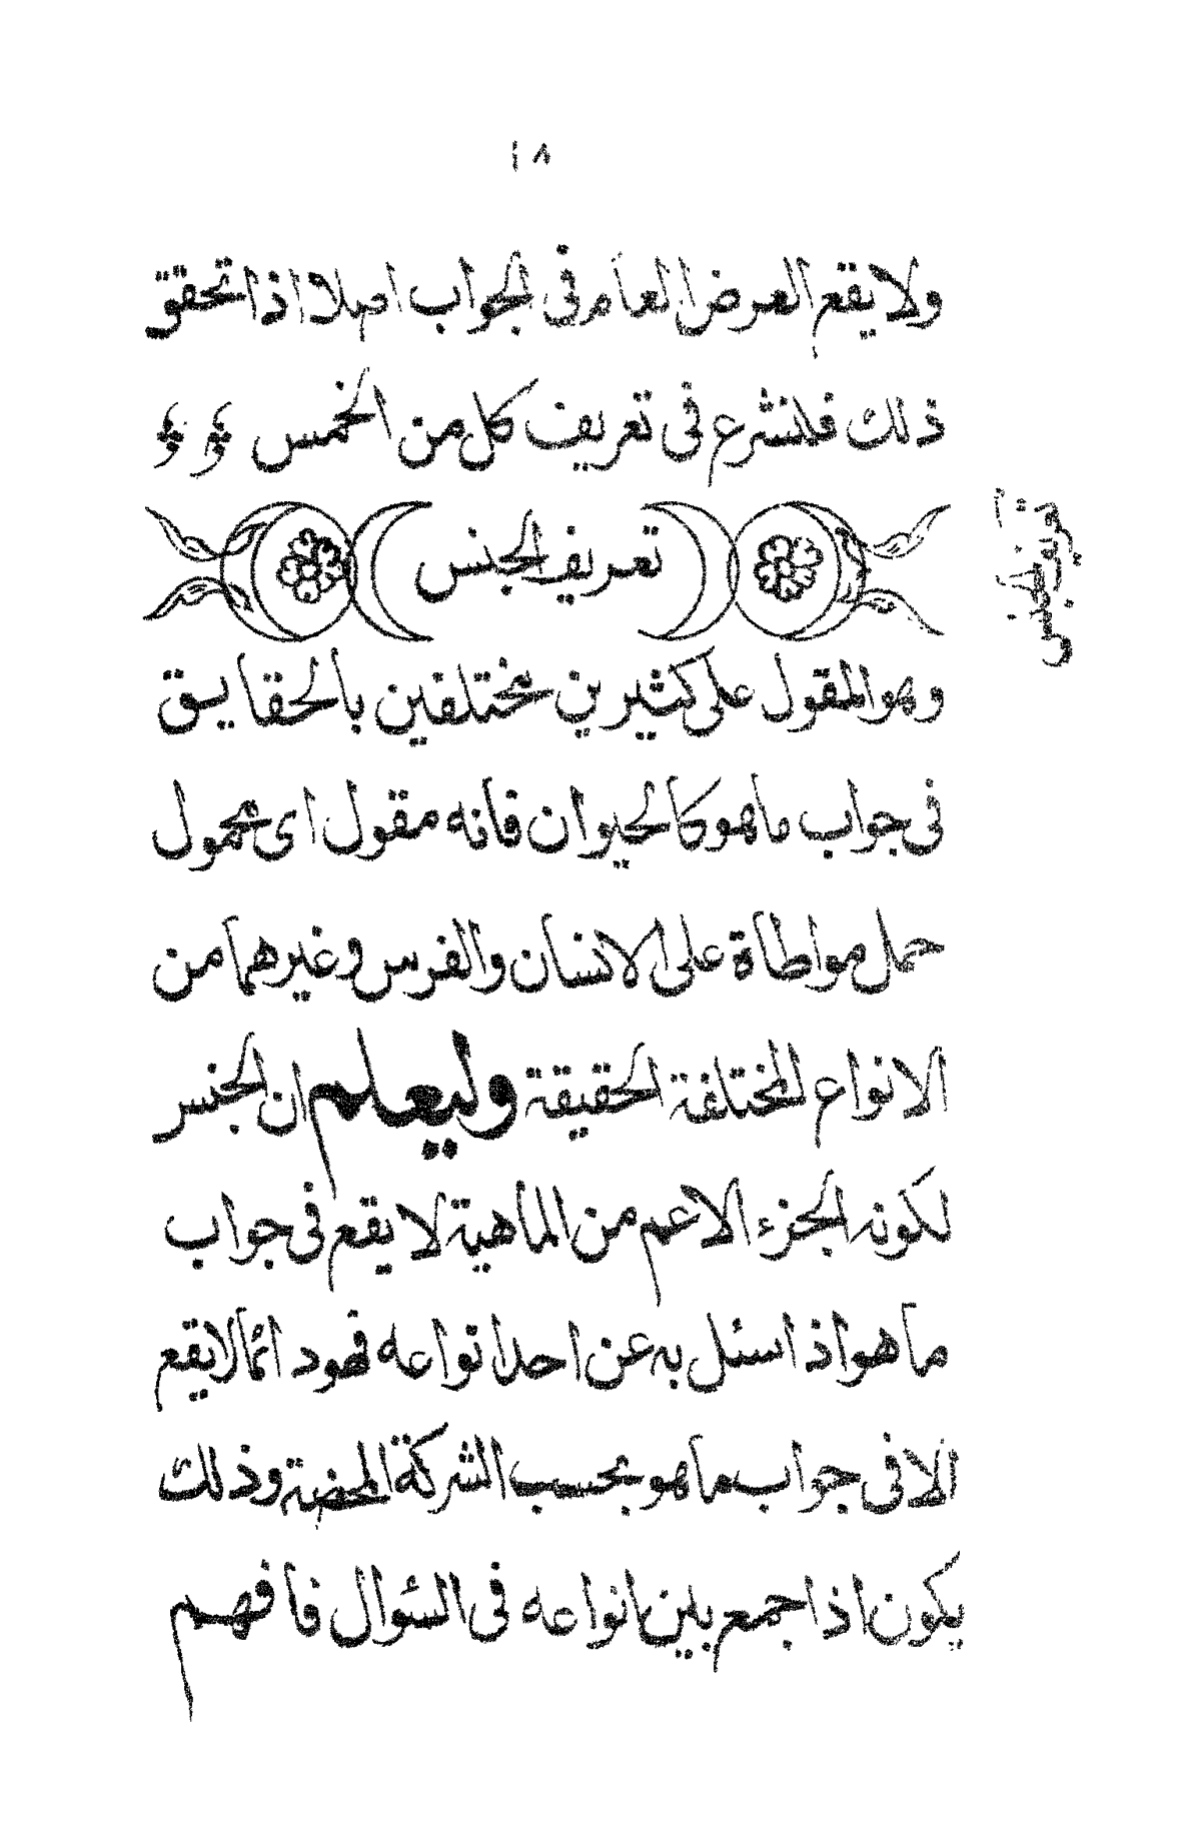 ١٨
ولا يقع العرض العام في الجواب اصلا اذا تحقق
ذلك فلنشرع في تعريف كل من الخمس
تعريف الجنس
تعريف الجنس
وهو المقول على كثيرين مختلفين بالحقايق
في جواب ما هو كالحيوان فانه مقول اى محمول
حمل مواطاة على الانسان والفرس وغيرهما من
الانواع المختلفة الحقيقة وليعلم ان الجنس
لكونه الجزء الاعم من الماهية لا يقع في جواب
ما هو اذا سئل به عن احد انواعه فهو دائما لا يقع
الا في جواب ما هو بحسب الشركة المحضة وذلك
يكون اذا جمع بين انواعه في السؤال فافهم